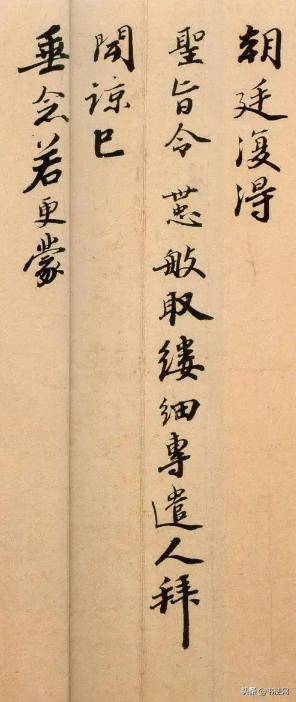 朝廷復得
聖旨令敏取縷細專遣人拜
聞諒已
垂念若更蒙
头条 @书法网